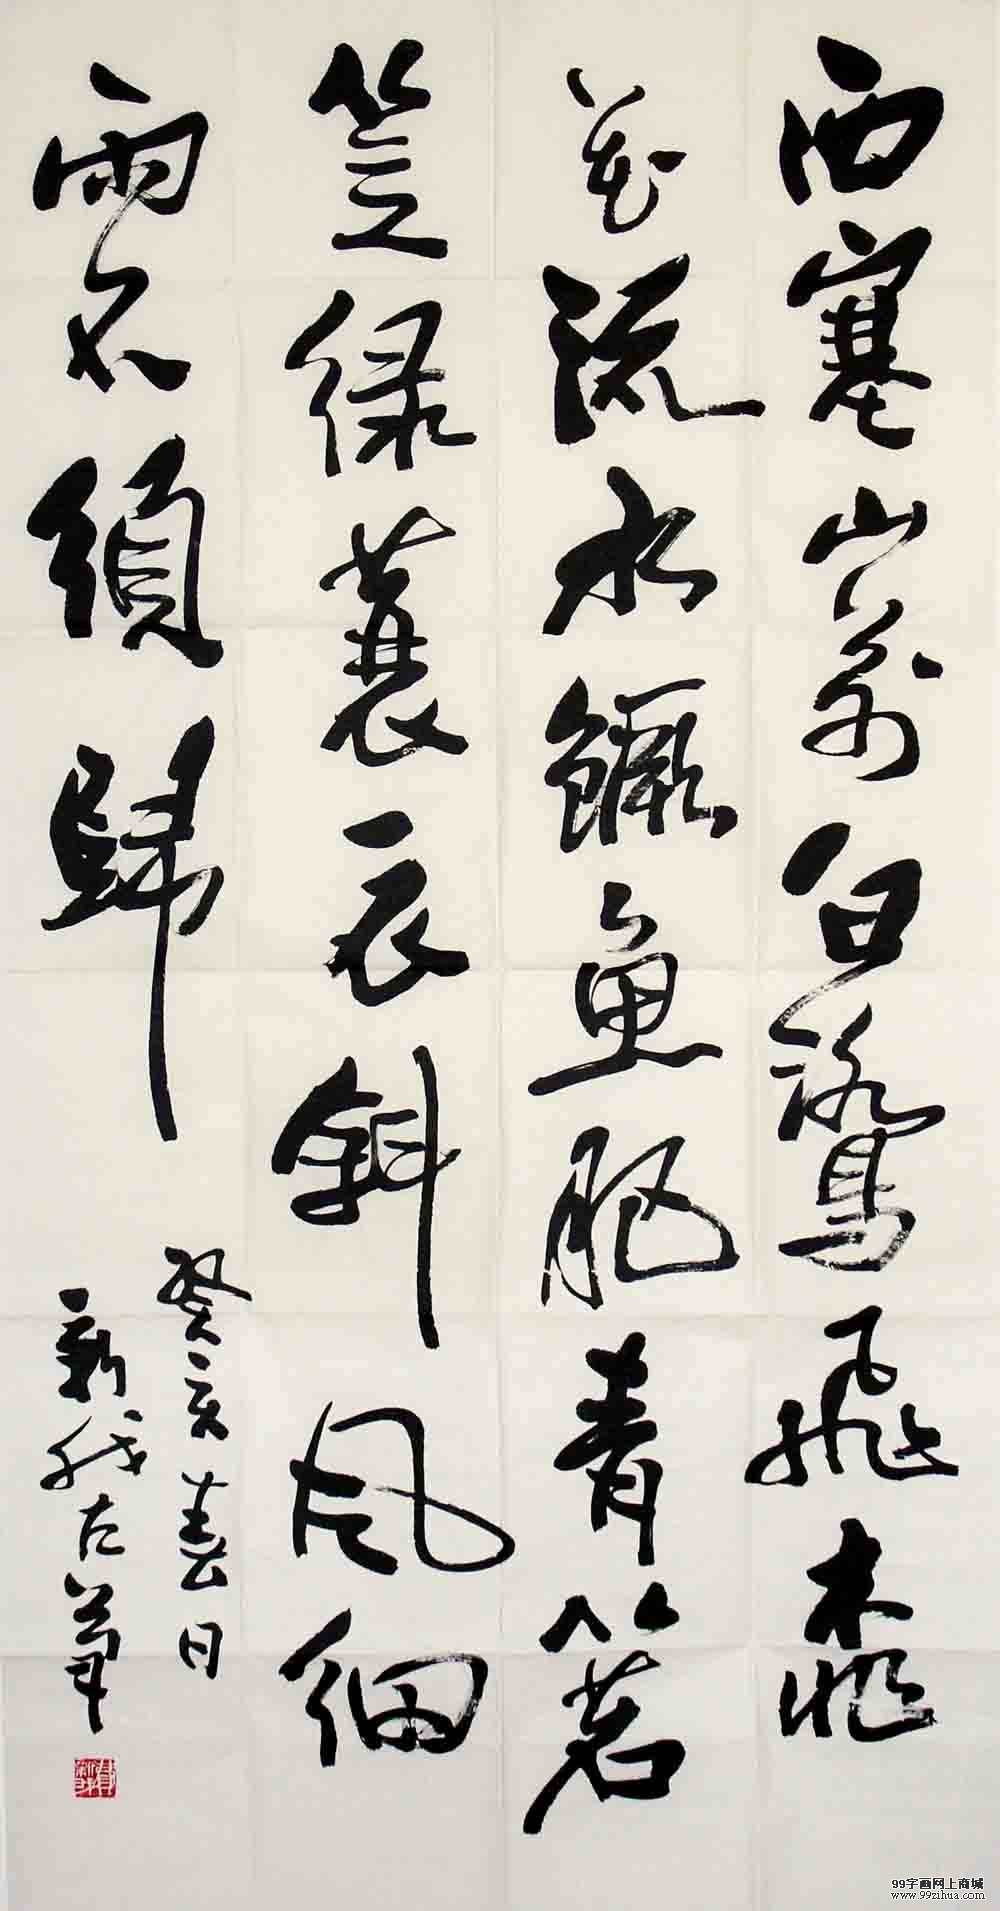 西塞山前白鹭飞桃
花流水鳜鱼肥青箬
笠绿蓑衣斜风细
雨不须归
癸亥春日
新我左笔
99字画网上商城
www.99zihua.com